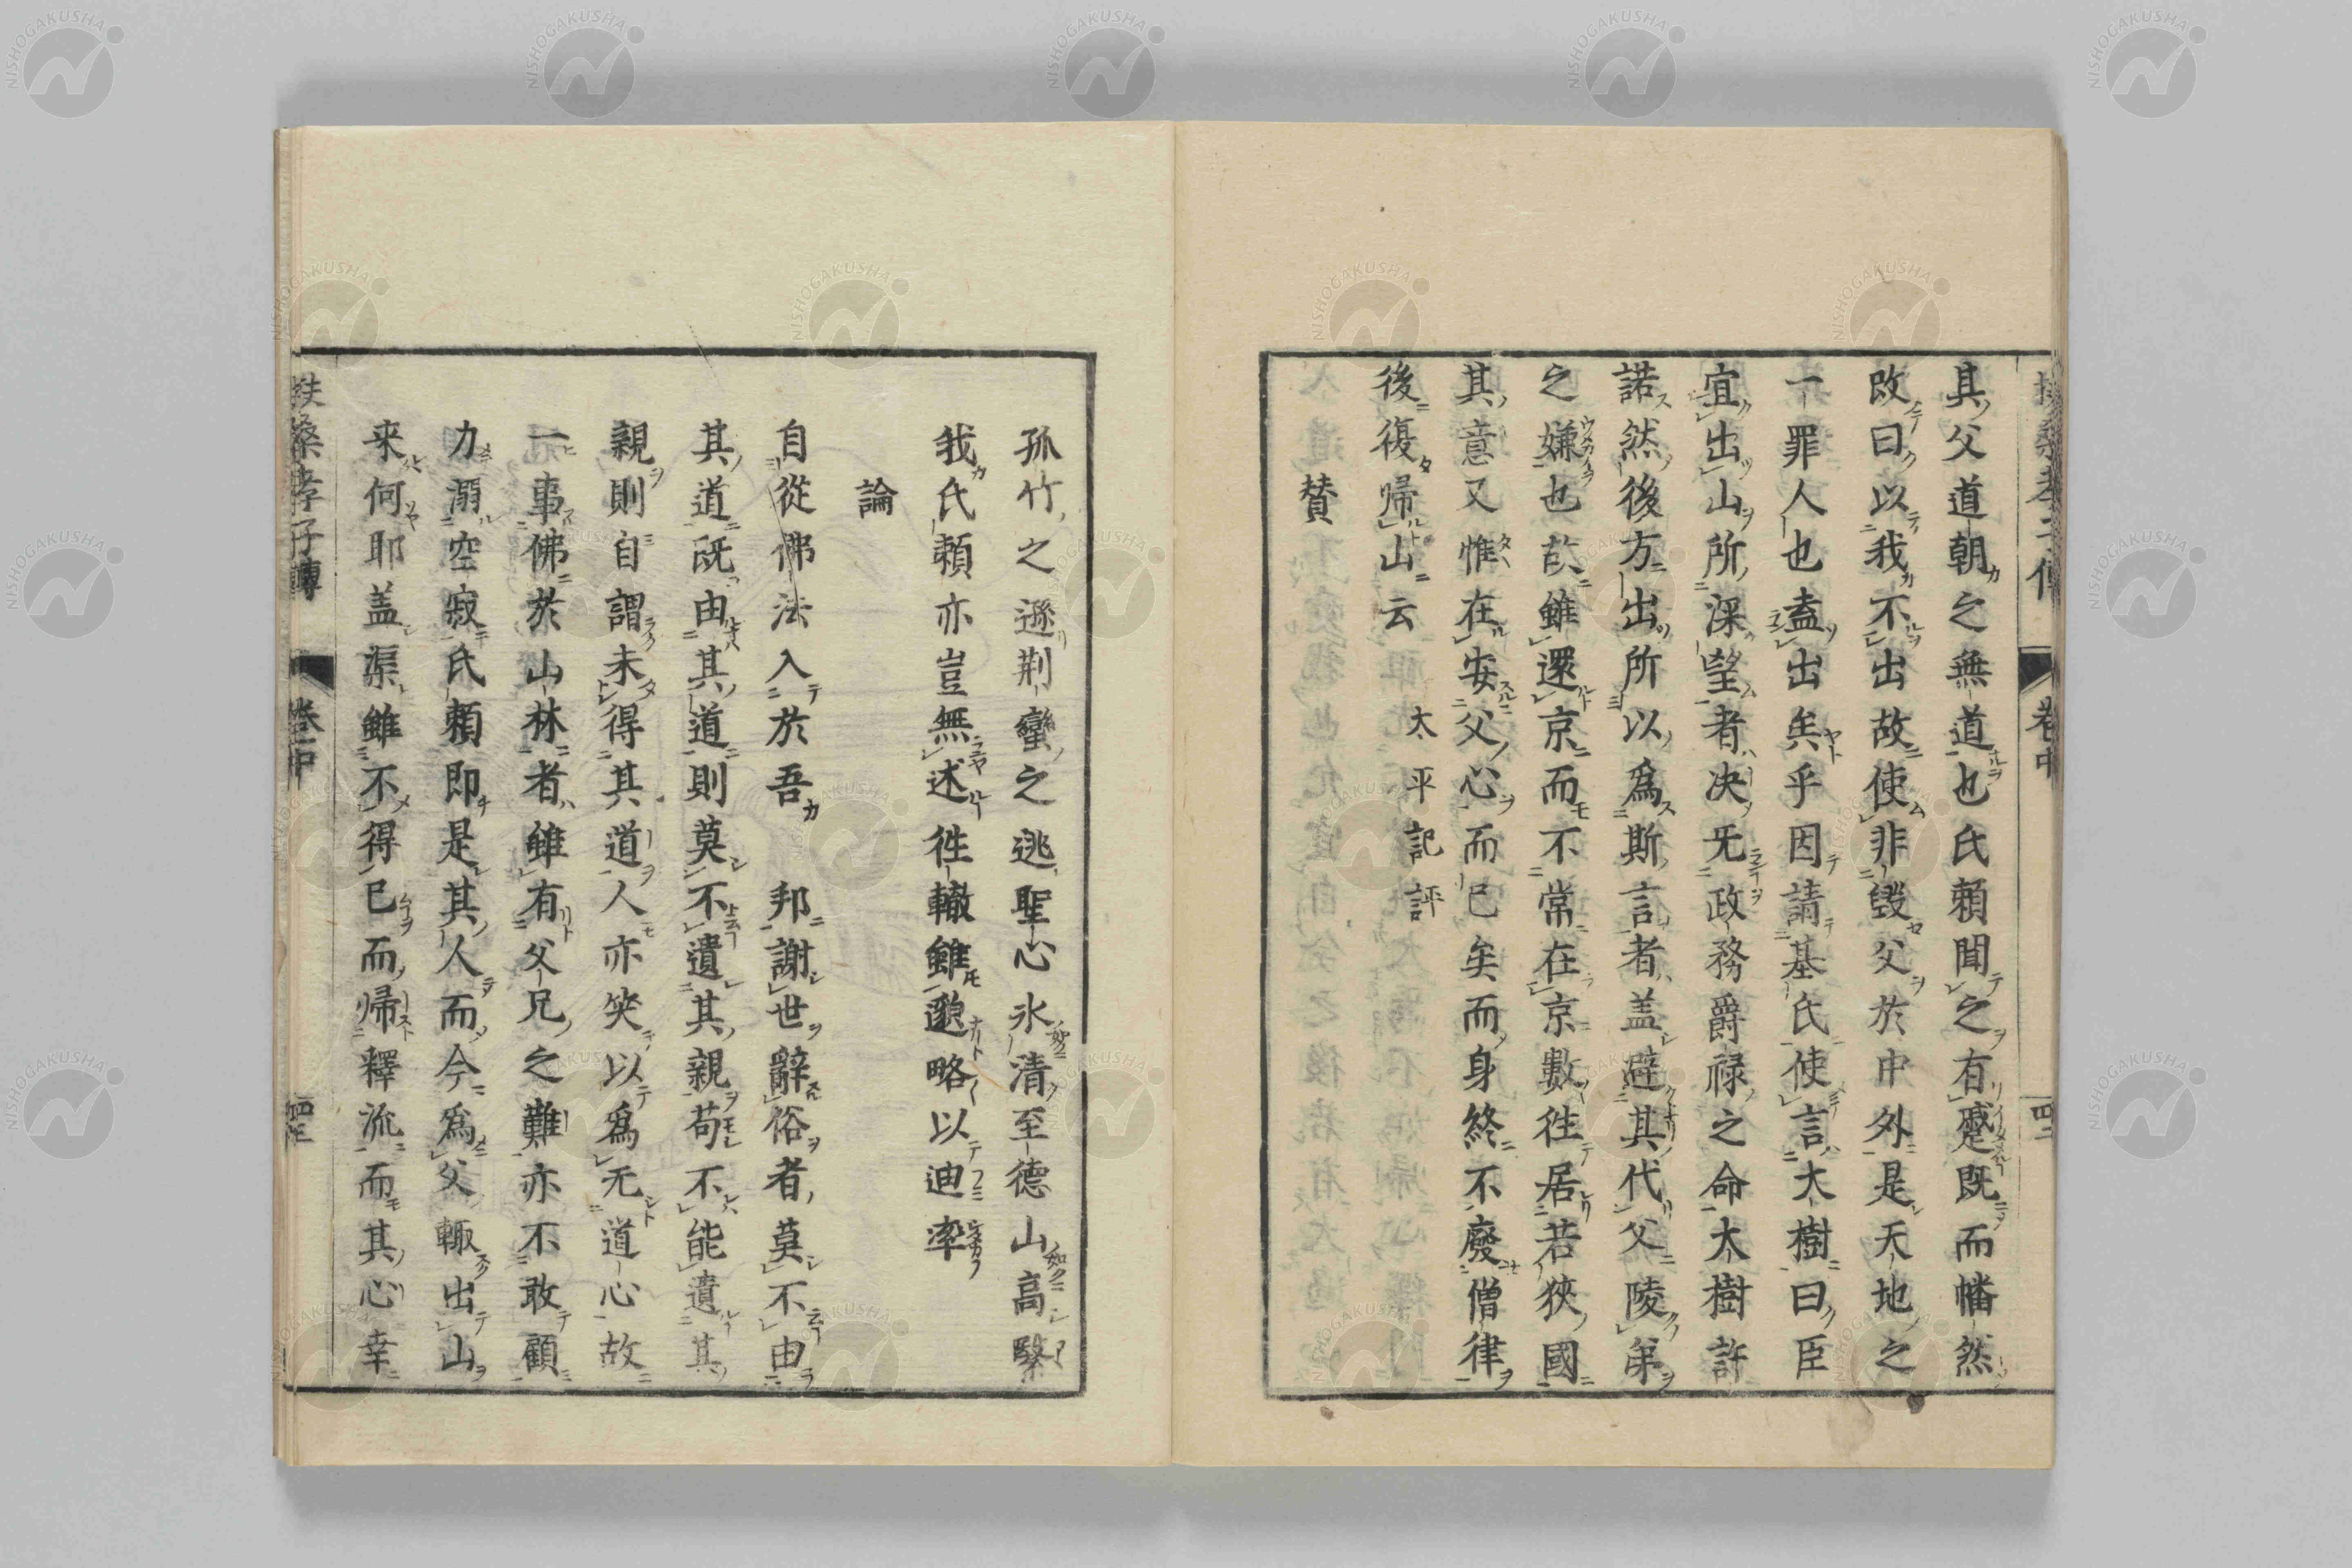 其父道朝之無道也氏頼聞之有蹙既而幡然
改曰以我不出故使非毀父於中外是天地之
一罪人也盍出矣乎因請基氏使言大樹曰臣
宜出山所深望者决无政務爵禄之命大樹許
諾然後方出所以爲斯言者盖避其代父陵弟
之嫌也故雖還京而不常在京數徃居若狹國
其意又惟在安父心而已矣而身終不廢僧律
後復帰山云
太平記評
賛
扶桑孝子傳
巻中
四二
孤竹之遜荆蠻之逃聖心氷清至德山高緊
我氏頼亦豈無述徃轍雖邈略以迪率
論
自從佛法入於吾邦謝世辭俗者莫不由
其道既由其道則莫不遺其親苟不能遺其
親則自謂未得其道人亦笑以爲无道心故
一事佛於山林者雖有父兄之難亦不敢顧
力溺空寂氏頼即是其人而今爲父輙出山
来何耶盖渠雖不得已而帰釋流而其心幸
扶桑孝子傳
巻中